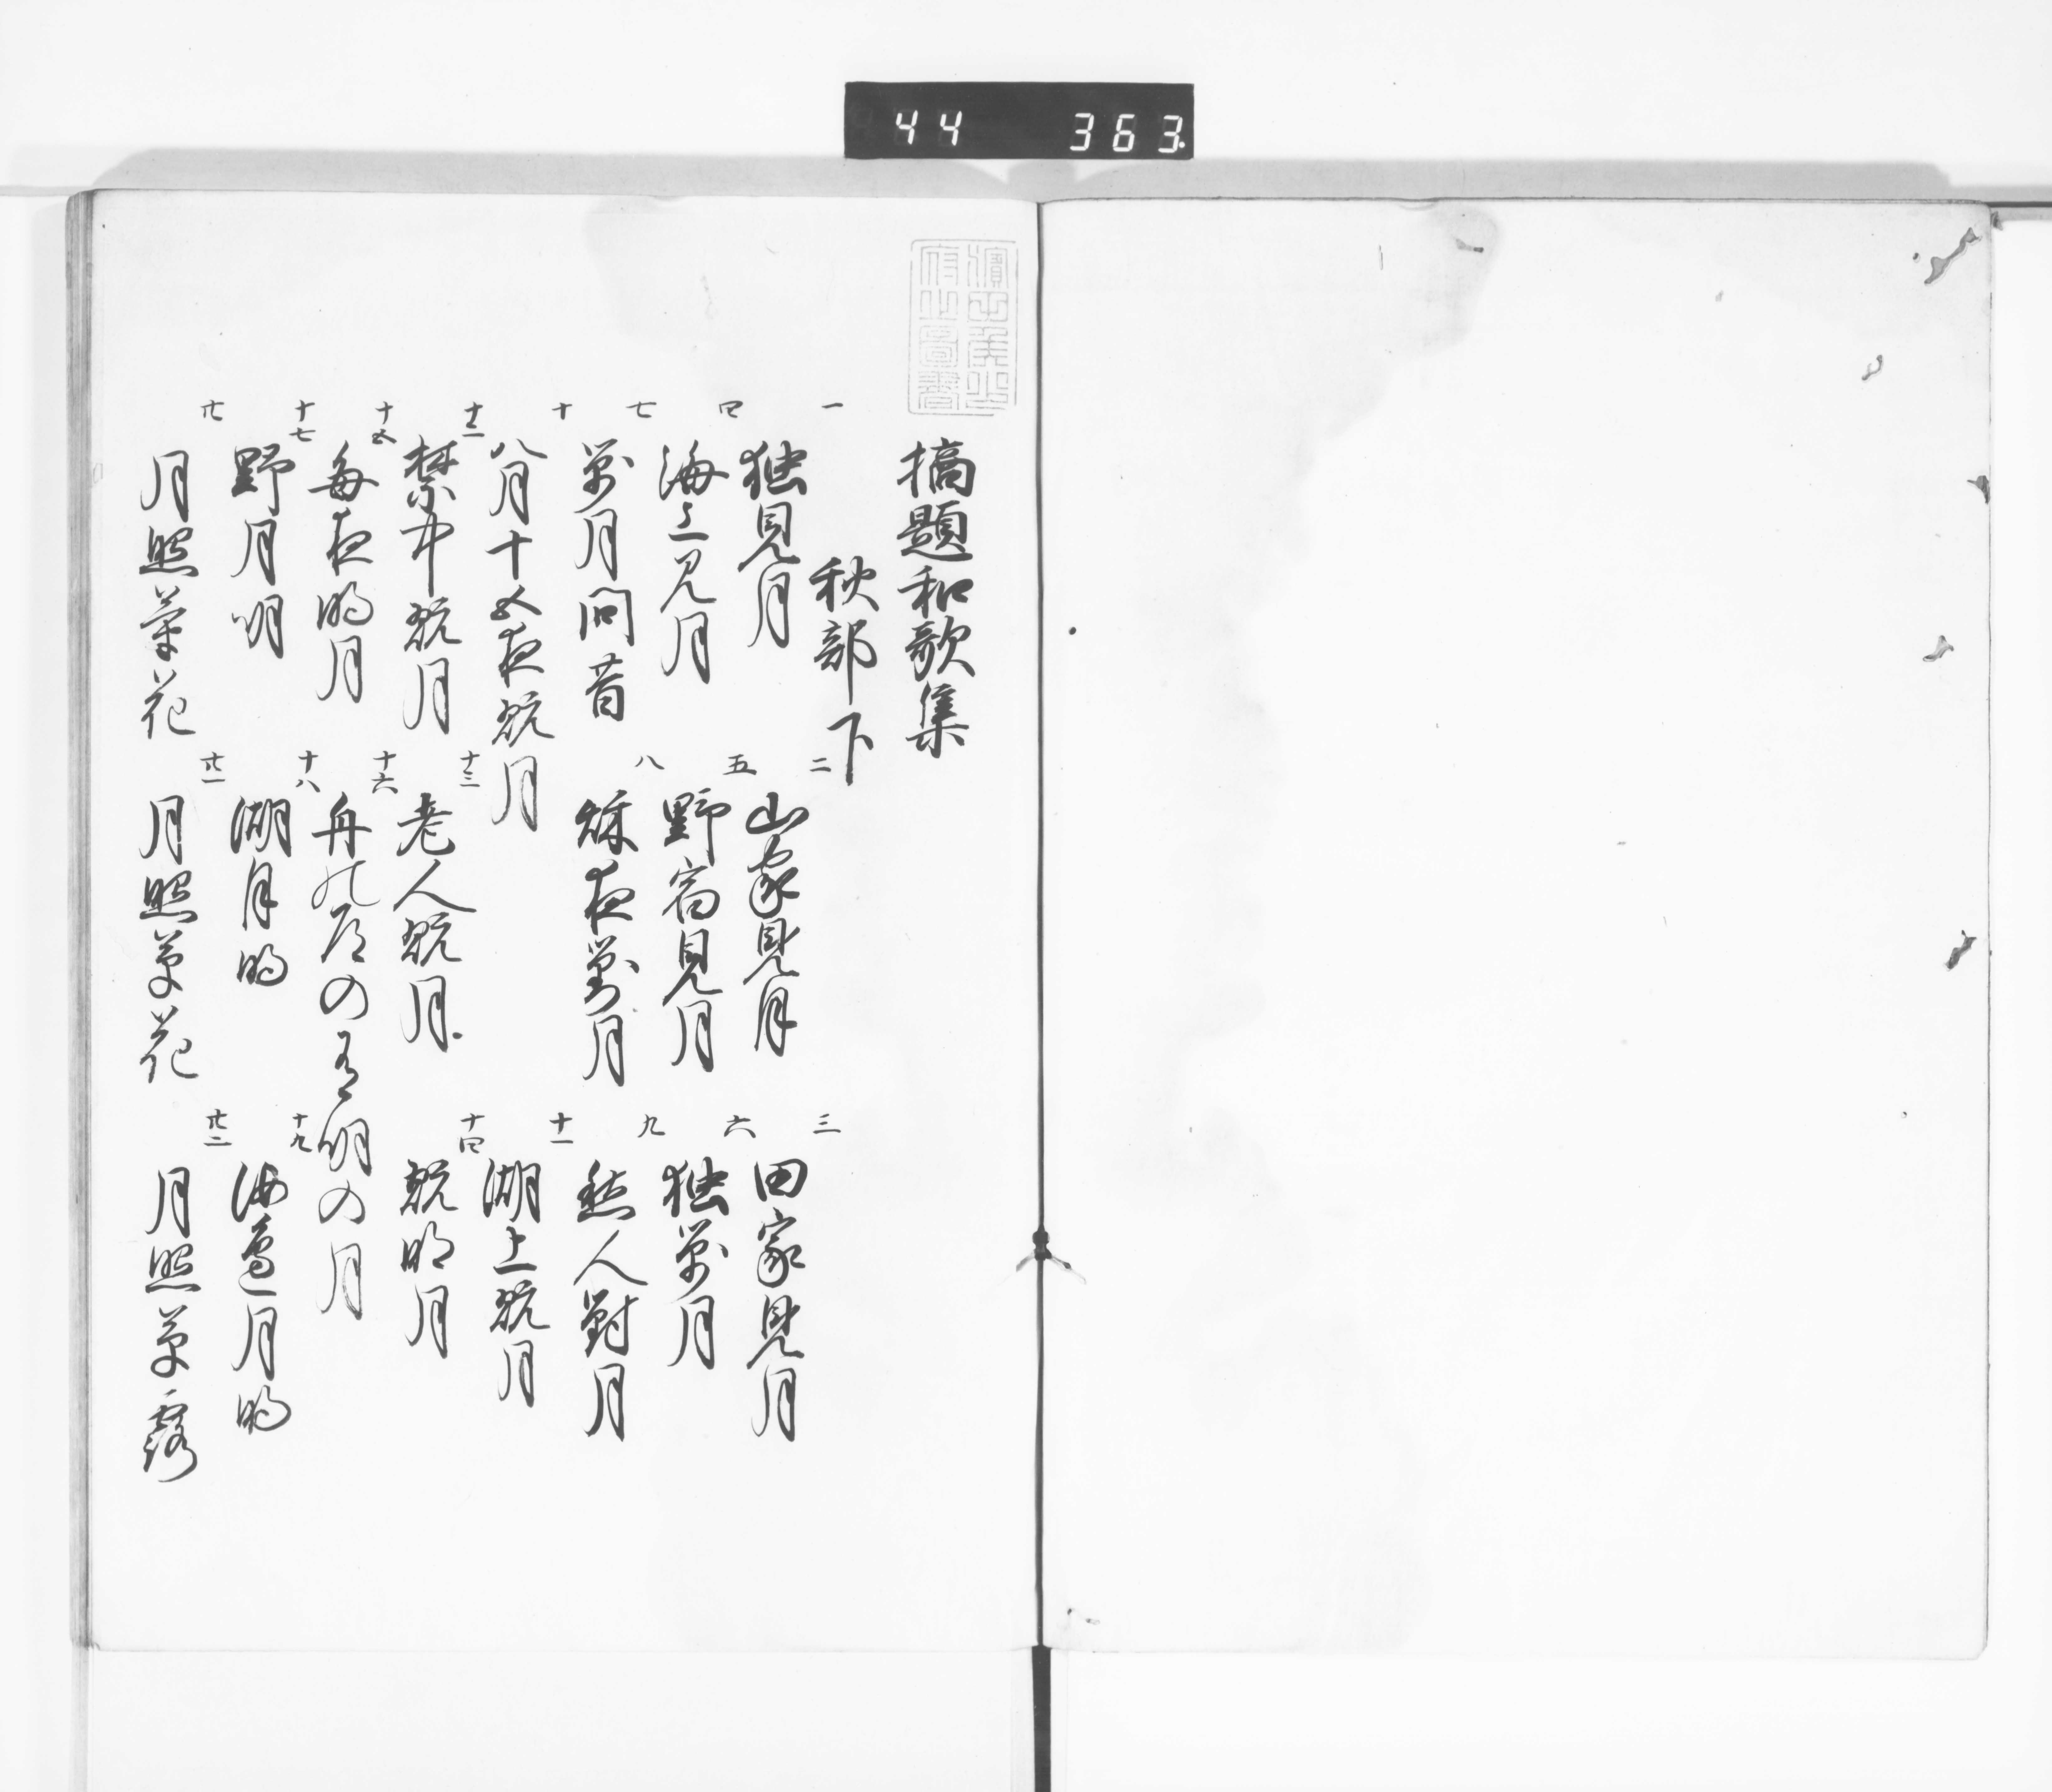 44 363
摘題和歌集
秋部下
一 独見月 二 山家見月 三 田家見月
四 海上見月 五 野宿見月 六 独対月
七 対月問昔 八 秋夜対月 九 愁人対月
十 八月十五夜翫月 十一 湖上翫月
十二 禁中翫月 十三 老人翫月 十四 翫明月
十五 毎夜明月 十六 舟の有明の月
十七 野月明 十八 湖月明 十九 海辺月明
廿 月照菊花 廿一 月照草花 廿二 月照草露